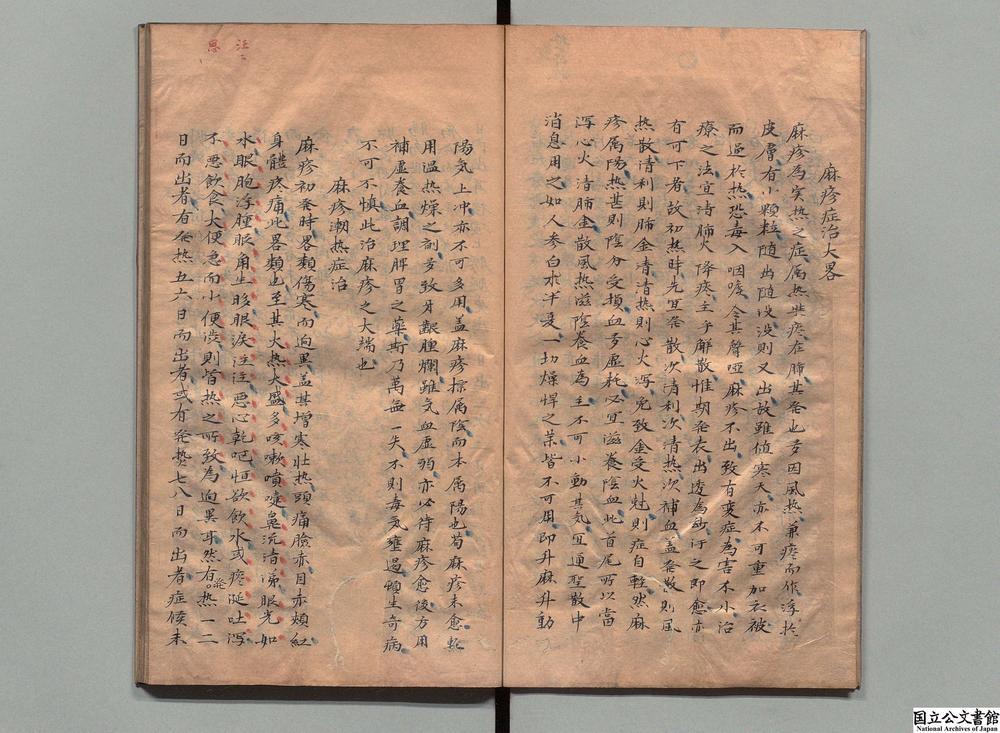 麻疹症治大畧
麻疹為实热之症属热與痰在肺其発也多因風热兼痰而作浮於
皮膚有小顆粒随出随没没則又出故雖値寒天亦不可重加衣被
而過於热恐毒入咽喉令其聲哑麻疹不出致有変症為害不小治
療之法宜清肺火降痰主乎解散惟期発表出透為妙汗之即愈亦
有可下者故初热時先宜発散次清利次清热次補血盖発散則風
热散清利則肺金清清热則心火瀉免致金受火尅則症自軽然麻
疹属陽热甚則陰分受損血多虚耗必宜滋養陰血此首尾所以當
瀉心火清肺金散風热滋陰養血為主不可小動其気宜通聖散中
消息用之如人参白朮半夏一切燥悍之薬皆不可用即升麻升動
陽気上冲亦不可多用盖麻疹標属陰而本属陽也苟麻疹未愈輕
用温热燥之剤多致牙齦腫爛雖気血虚弱亦必待麻疹愈後方用
補虚養血調理脾胃之藥斯乃萬無一失不則毒気壅遏頓生奇病
不可不慎此治麻疹之大端也
麻疹潮热症治
麻疹初発時畧類傷寒而逈異盖其增寒壮热頭痛臉赤目赤頬紅
身體疼痛此畧類也至其火热大盛多咳嗽噴嚏鼻流清涕眼光如
水眼胞浮腫眼角生眵眼涙注注悪心乾呕恒欲飲水或痰涎吐瀉
不悪飲食大便急而小便渋則皆热之所致為逈異耳然有発热一二
日而出者有発热五六日而出者或有発热七八日而出者症候未
汪二
恩
国立公文書館
National Archives of Japan